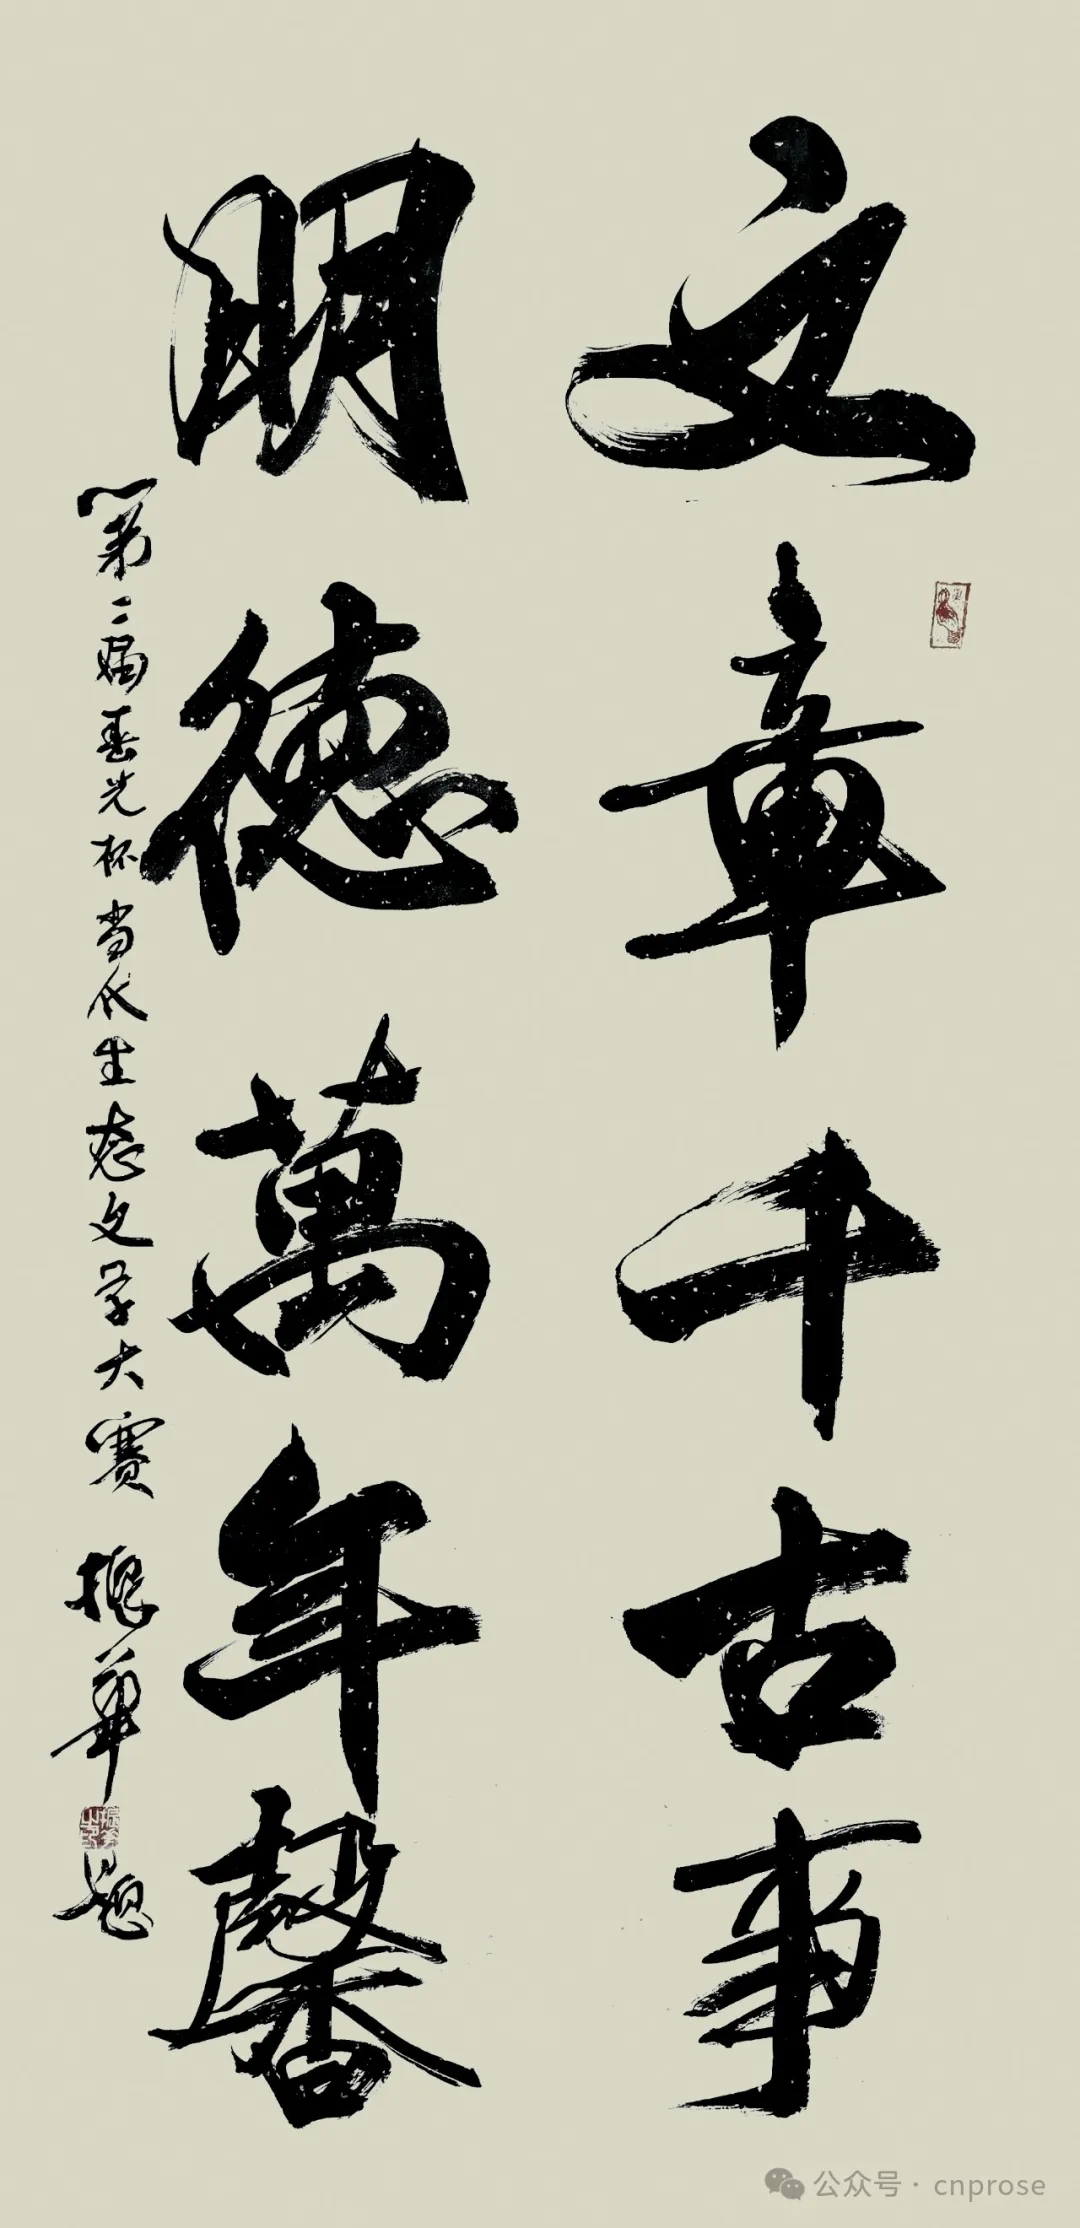 文章千古事
明德萬年馨
第二届春光杯当代生态文学大赛 振华题
公众号·cnprose